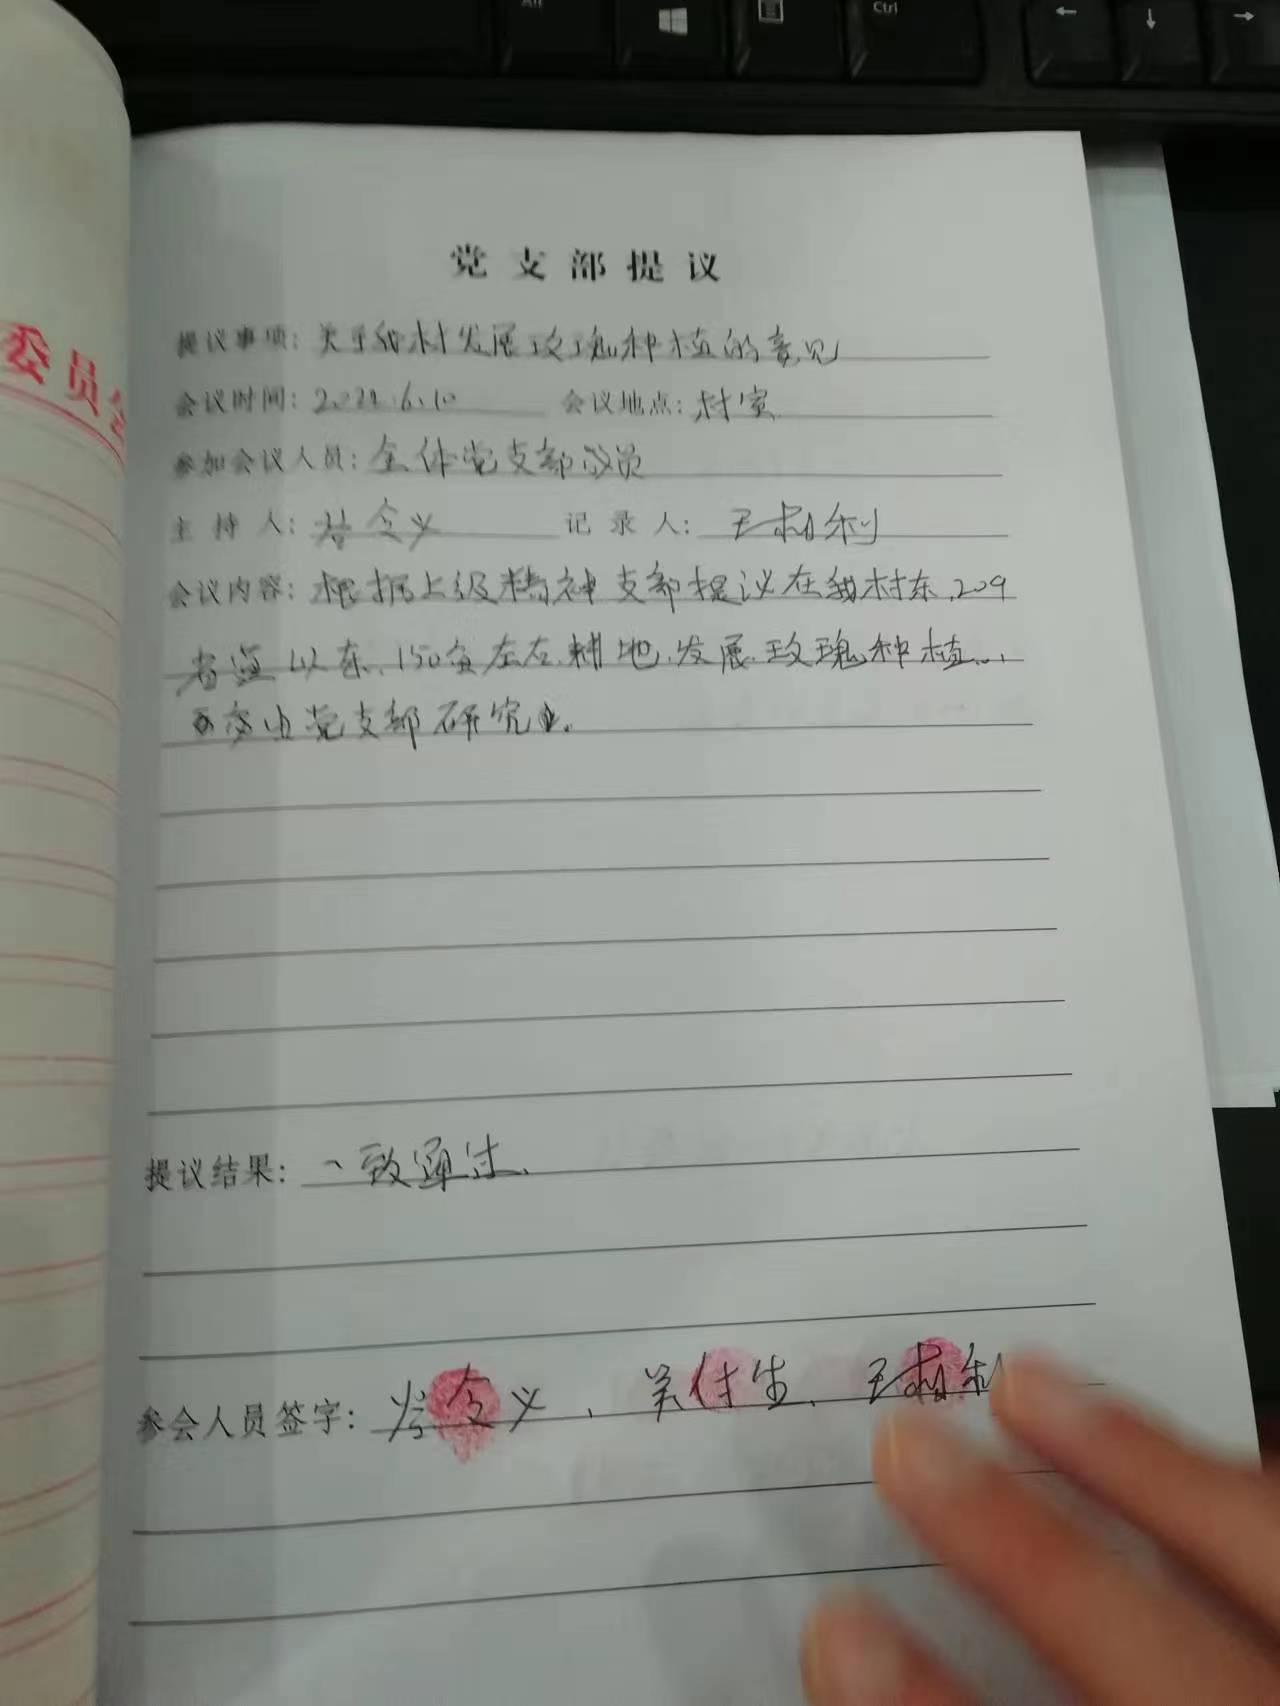 Alt
Ctrl
委员会
党支部提议
提议事项: 关于我村发展玫瑰种植的意见
会议时间: 2022.6.10 会议地点: 村室
参加会议人员: 全体党支部议员
主持人: 令义 记录人: 王柏利
会议内容: 根据上级精神支部提议在我村东、209
省道以东、150亩左右耕地、发展玫瑰种植...,
交由党支部研究.
提议结果: 一致通过.
参会人员签字: 令义、关付生、王柏利